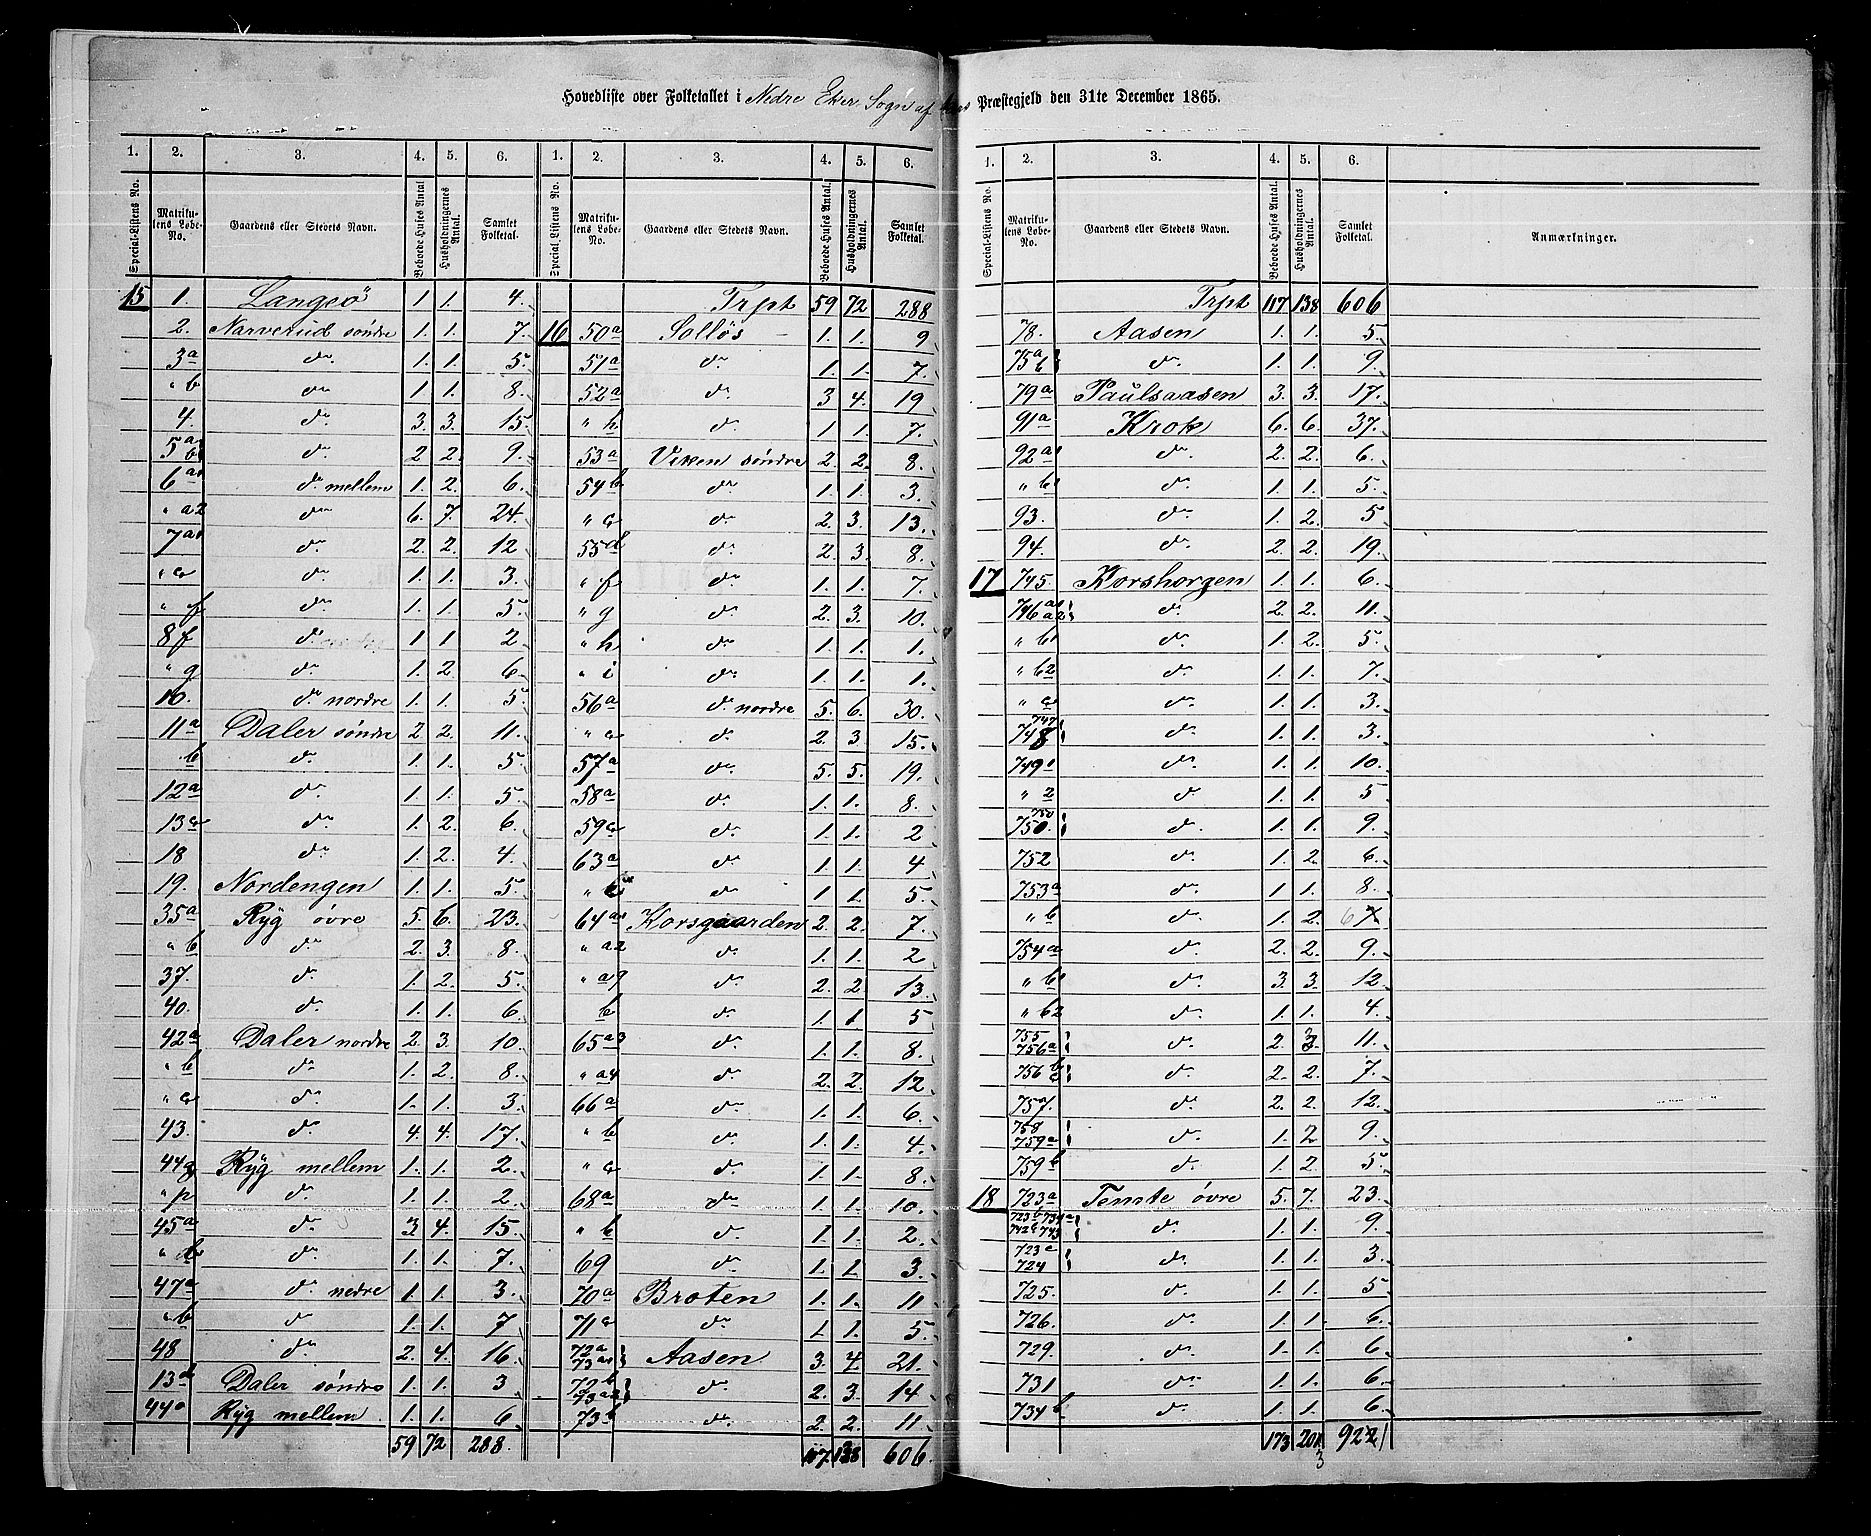 Hovedliste over Folketallet i Nedre Eker Sogn af Præstegjeld den 31te December 1865.
1. 2. 3. 4. 5. 6. 1. 2. 3. 4. 5. 6.
Special-Listens No. Matrikulens Løbe-No. Gaardens eller Stedets Navn. Beboede Huses Antal Husholdningernes Antal. Samlet Folketal. Special Listens No. Matrikulens Løbe-No. Gaardens eller Stedets Navn. Beboede Huses Antal. Husholdningernes Antal. Samlet Folketal.
15 1. Langsö 1. 1. 4.
2. Narverud søndre 1. 1. 7.
3a do 1. 1. 5.
" b do 1. 1. 8.
4. do 3. 3. 15.
5 a b do 2 2. 9.
6a1 do mellem 1. 2. 6.
" a2 do 6. 7. 24.
7a1 do 2. 2. 12
" c do 1. 1. 3.
" f do 1. 1. 5.
8f do 1. 1 2
" g do 1. 2. 6.
10. do nordre 1. 1. 5.
11a Daler søndre 2 2. 11.
b do 1. 1. 5.
12a do 1. 1. 5.
13c do 1. 2. 6.
18 do 1. 2. 4.
19. Nordengen 1. 1. 5.
35a Ryg övre 5. 6. 23.
" b do 2. 3. 8.
37. do 1. 2. 5.
40. do 1. 1. 6.
42a Daler nordre 2. 3. 10.
" b do 1. 2. 8.
" c do 1. 1. 3.
43. do 4. 4. 17.
44g Ryg mellem 1. 1. 2.
" p do 1. 1. 2.
45a do 3 4. 15.
" d do 1. 1. 7.
47a do nedre 1. 1. 3.
" b do 1. 1. 7
48 do 2. 4. 16.
13d Daler søndre 1. 1. 3
44 Ryg mellem 1. 1. 6
59 72 288.
Trpt 59 72 288
16 50a Solløs 1. 1. 9
51a do 1. 1. 7.
52a do 3 4. 19
" h do 1 1. 7.
53a Viken søndre 2. 2. 8.
54b do 1. 1. 3.
" c do 2. 3. 13.
55d do 2. 3. 8.
" f do 1. 1. 7.
" g do 2. 3. 10.
" h do 1. 1. 1.
" i do 1. 1. 1.
56a do nordre 5. 6. 30.
" c do 2. 3 15.
57a do 5. 5. 19.
58a do 1. 1. 8.
59c do 1. 1. 2
63a do 1. 1. 4
" b do 1 1. 5.
64a1 Korsgaarden 2. 2. 7.
" a2 do 1. 1. 2
" a9 do 2. 2. 13.
b do 1. 1 5
65a3 do 1. 1. 8.
" a4 do 2. 2. 12
66a do 1. 1. 6.
" b do 1. 1. 4.
" c do 1. 1. 8.
68a do 1. 1. 10.
" b do 1. 1. 2.
69 do 1. 1. 3.
70a Broten 1. 1. 11
71c do 1. 1. 5.
72a 73a1 Aasen 3. 4. 21.
72b 73a2 do 2. 3. 14
73b do 2. 2. 11
117 138 606.
1. 2. 3. 4. 5. 6.
Special-Listens No. Matrikulens Løbe-No. Gaardens eller Stedets Navn. Beboede Huses Antal. Husholdningernes Antal. Samlet Folketal. Anmærkninger.
Trpt 117 138 606
78. Aasen 1. 1. 5.
75a b do 1. 1. 9.
79a Paulsaasen 3. 3. 17.
91a Krok 6. 6. 37.
92a do 2. 2. 6.
" b do 1. 1. 5.
93. do 1. 2. 5
94. do 2. 2. 19.
17 745. Korshorgen 1. 1. 6.
746 a1 a2 do 2. 2. 11.
" b1 do 1. 2. 5.
" b2 do 1. 1. 7.
" c do 1. 1. 3.
747 748 do 1. 1. 3.
749 1 do 1. 1. 10.
" 2 do 1. 1. 5
750 750. do 1. 1. 9.
752 do 1. 2. 6.
753a do 1. 1. 8.
" b do 1. 2. 6 7.
754a do 2. 2. 9.
" b1 do 3. 3. 12
" b2 do 1. 1. 4.
755 756a do 2. 3. 11.
756 b c do 2. 2. 7.
757. do 2. 2. 12.
758 759a do 1. 2 9.
759b do 1. 2. 5.
18 723a Temte øvre 5. 7. 23.
723b 734a 742b 743 do 1. 1. 9.
723c 724 do 1. 1. 3.
725. do 1. 1. 5
726. do 1. 1. 6.
729. do 1. 1. 6
731 do 1. 1. 6.
734b do 1. 1. 6.
173 201 922
3